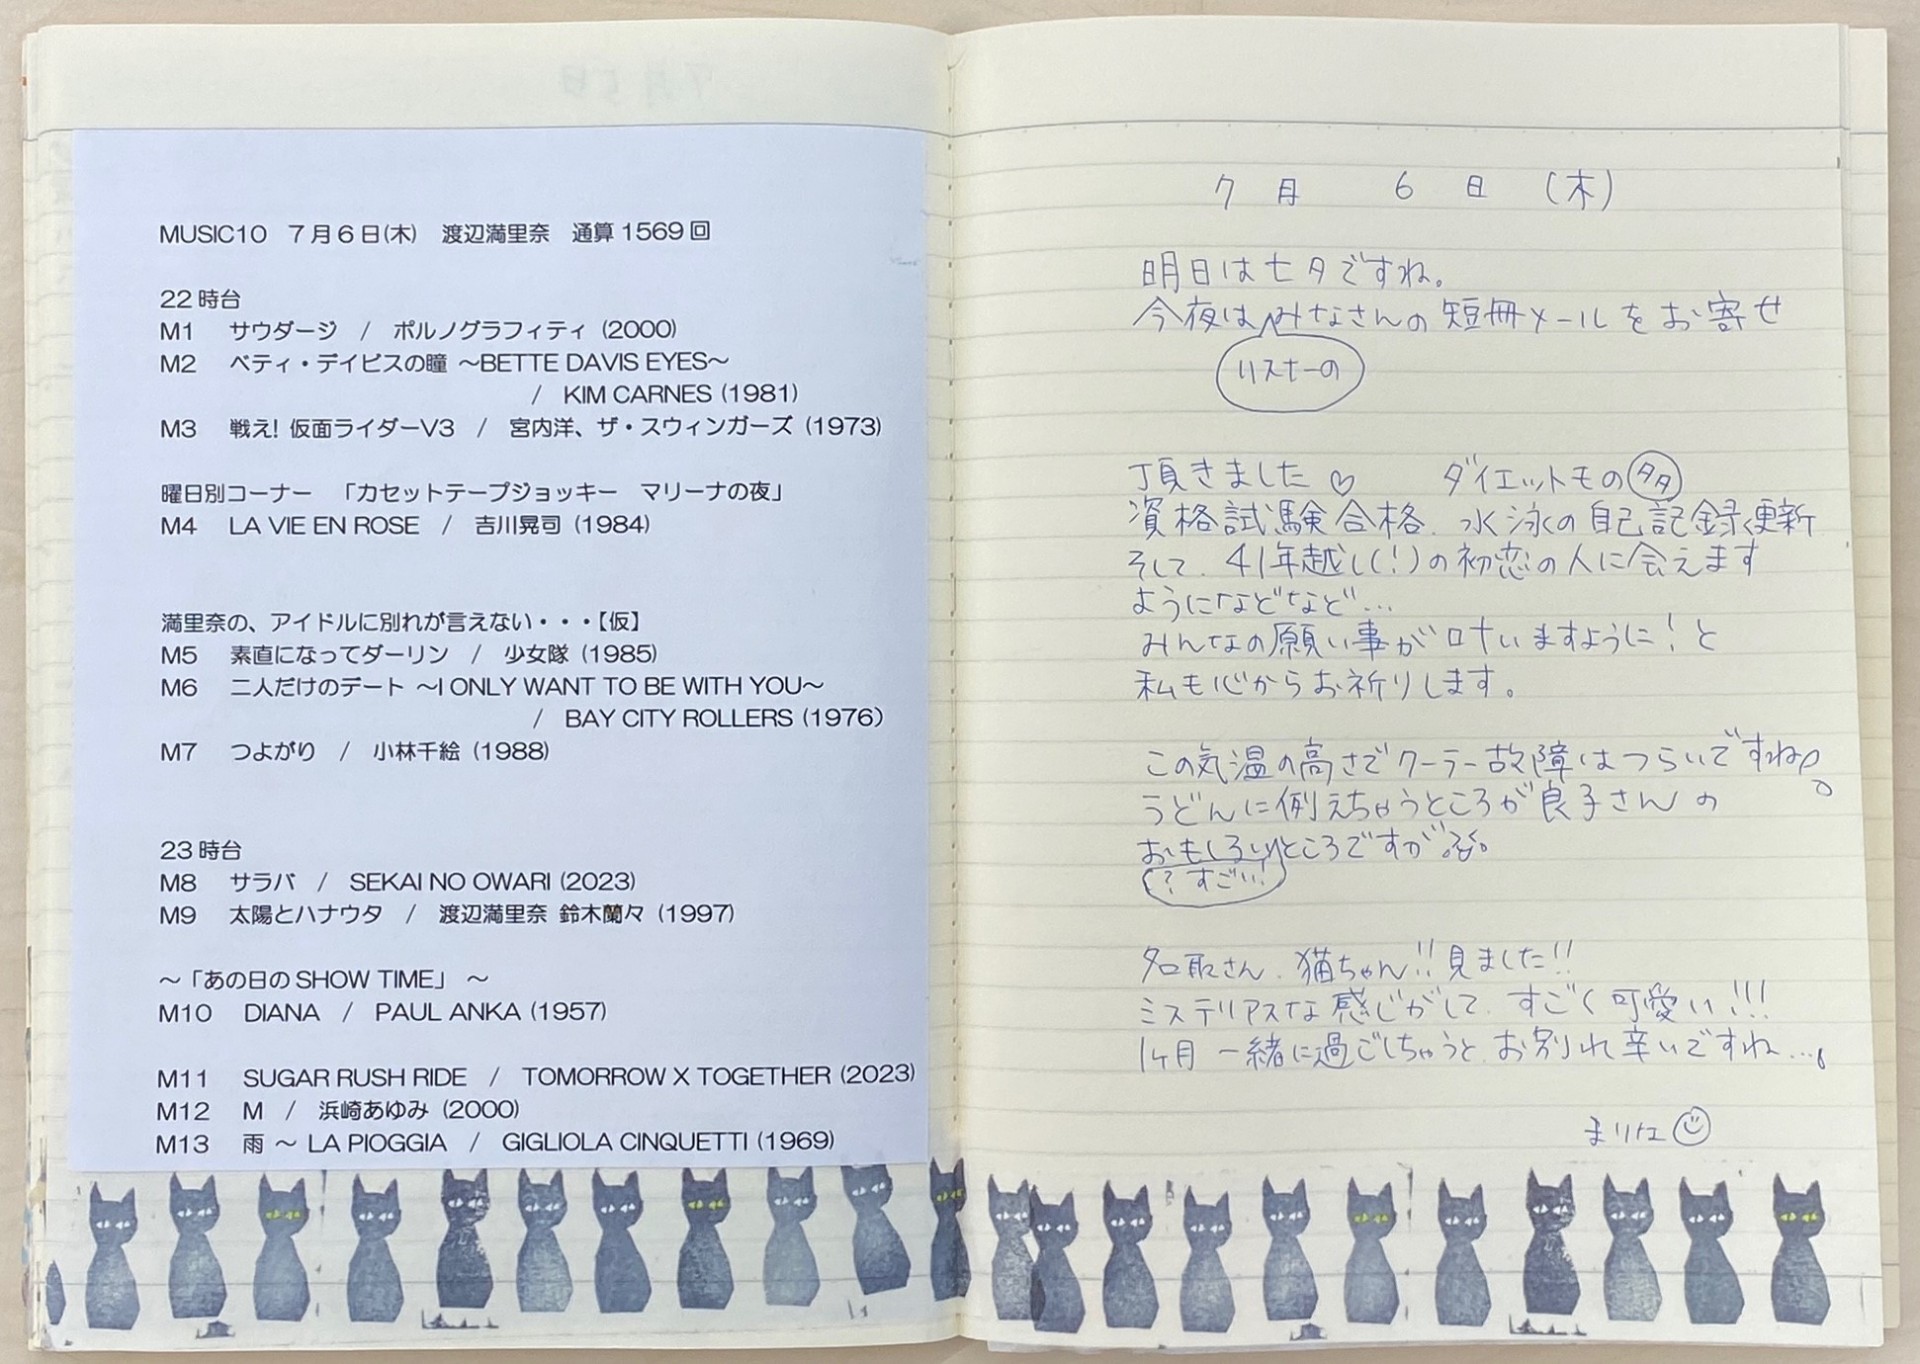 MUSIC10　7月6日(木)　渡辺満里奈　通算1569回
22時台
M1　サウダージ　/　ポルノグラフィティ (2000)
M2　ベティ・デイビスの瞳 ～BETTE DAVIS EYES～
/　KIM CARNES (1981)
M3　戦え! 仮面ライダーV3　/　宮内洋、ザ・スウィンガーズ (1973)
曜日別コーナー　「カセットテープジョッキー　マリーナの夜」
M4　LA VIE EN ROSE　/　吉川晃司 (1984)
満里奈の、アイドルに別れが言えない・・・【仮】
M5　素直になってダーリン　/　少女隊 (1985)
M6　二人だけのデート ～I ONLY WANT TO BE WITH YOU～
/　BAY CITY ROLLERS (1976)
M7　つよがり　/　小林千絵 (1988)
23時台
M8　サラバ　/　SEKAI NO OWARI (2023)
M9　太陽とハナウタ　/　渡辺満里奈 鈴木蘭々 (1997)
～「あの日のSHOW TIME」 ～
M10　DIANA　/　PAUL ANKA (1957)
M11　SUGAR RUSH RIDE　/　TOMORROW X TOGETHER (2023)
M12　M　/　浜崎あゆみ (2000)
M13　雨 ～ LA PIOGGIA　/　GIGLIOLA CINQUETTI (1969)
7月　6日　(木)
明日は七夕ですね。
今夜はみなさんの短冊メールをお寄せ
リスナーの
頂きました♡　ダイエットもの多
資格試験合格、水泳の自己記録更新
そして、41年越し(!)の初恋の人に会えます
ようになどなど…
みんなの願い事が叶いますように!と
私も心からお祈りします。
この気温の高さでクーラー故障はつらいですね。
うどんに例えちゃうところが良子さんの
おもしろいところですが
?すごい!
名取さん、猫ちゃん!!見ました!!
ミステリアスな感じがして、すごく可愛い!!!
1ヶ月一緒に過ごしちゃうと、お別れ辛いですね…。
まりな